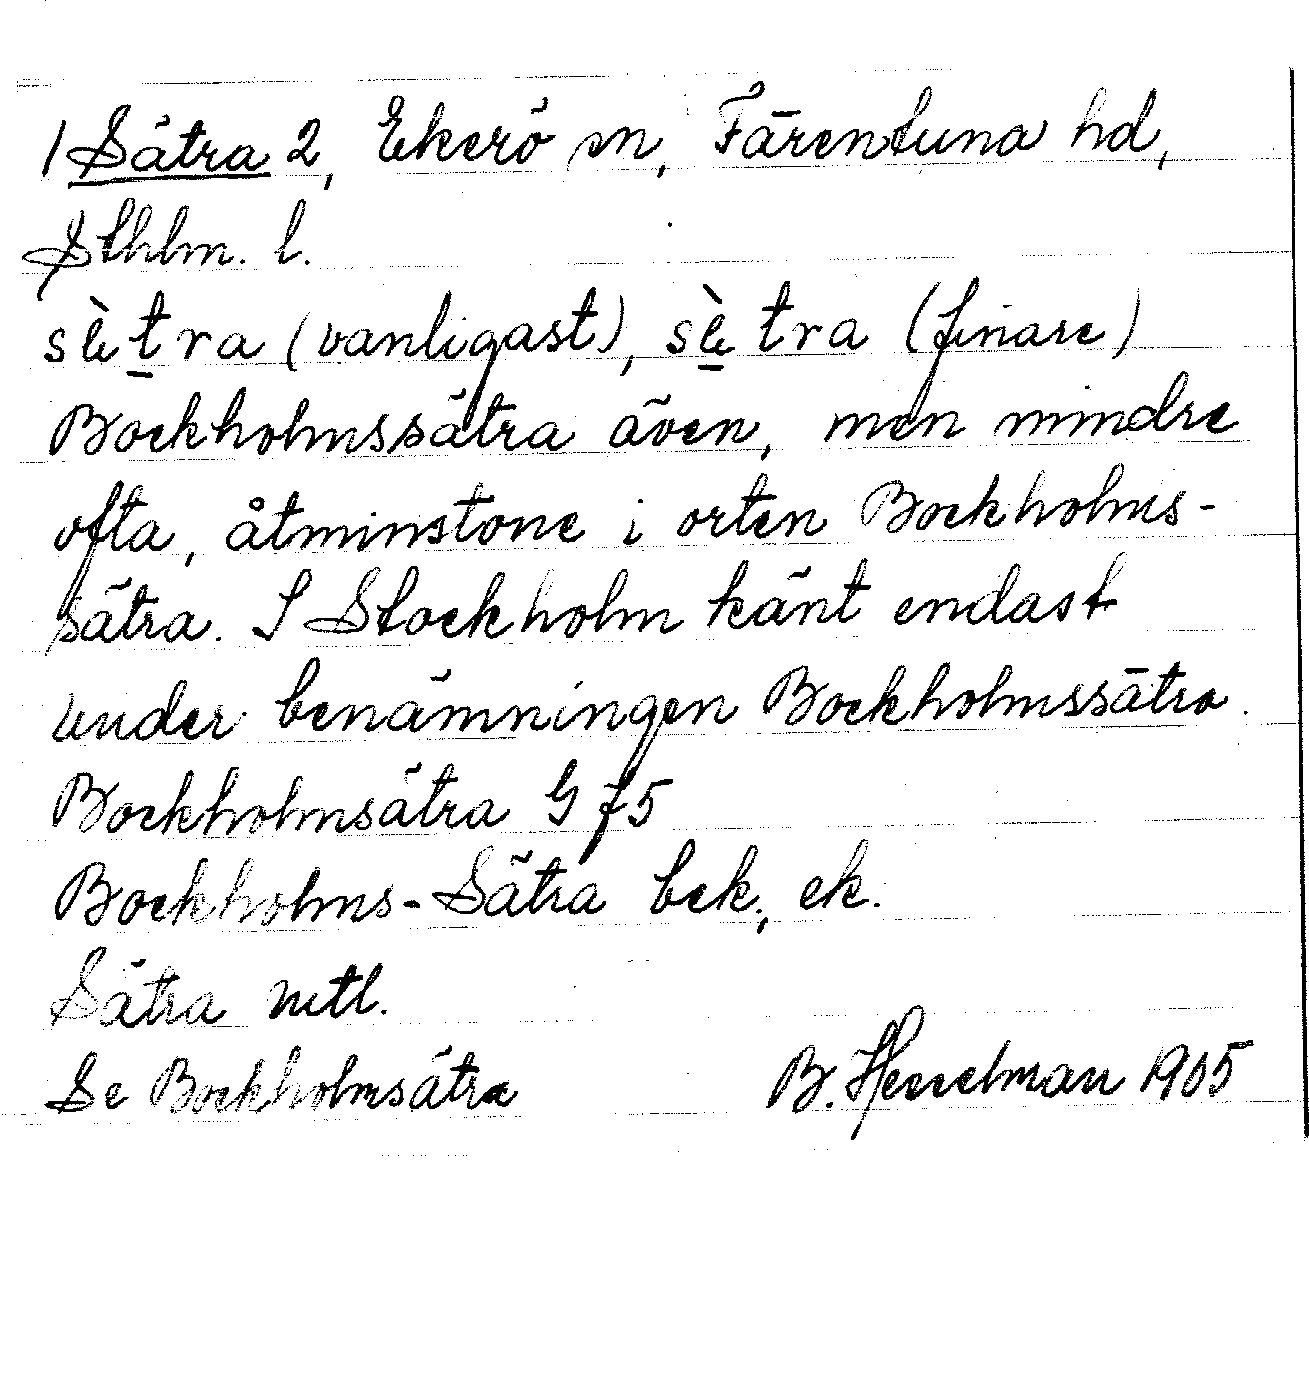 1 Sätra 2, Ekerö sn, Färentuna hd,
Sthlm. l.
sètra (vanligast), sètra (finare)
Bockholmssätra även, men mindre
ofta, åtminstone i orten Bockholms-
sätra. I Stockholm känt endast
under benämningen Bockholmssätra.
Bockholmsätra G f 5
Bockholms-Sätra bek., ek.
Sätra mtl.
Se Bockholmsätra B. Hesselman 1905